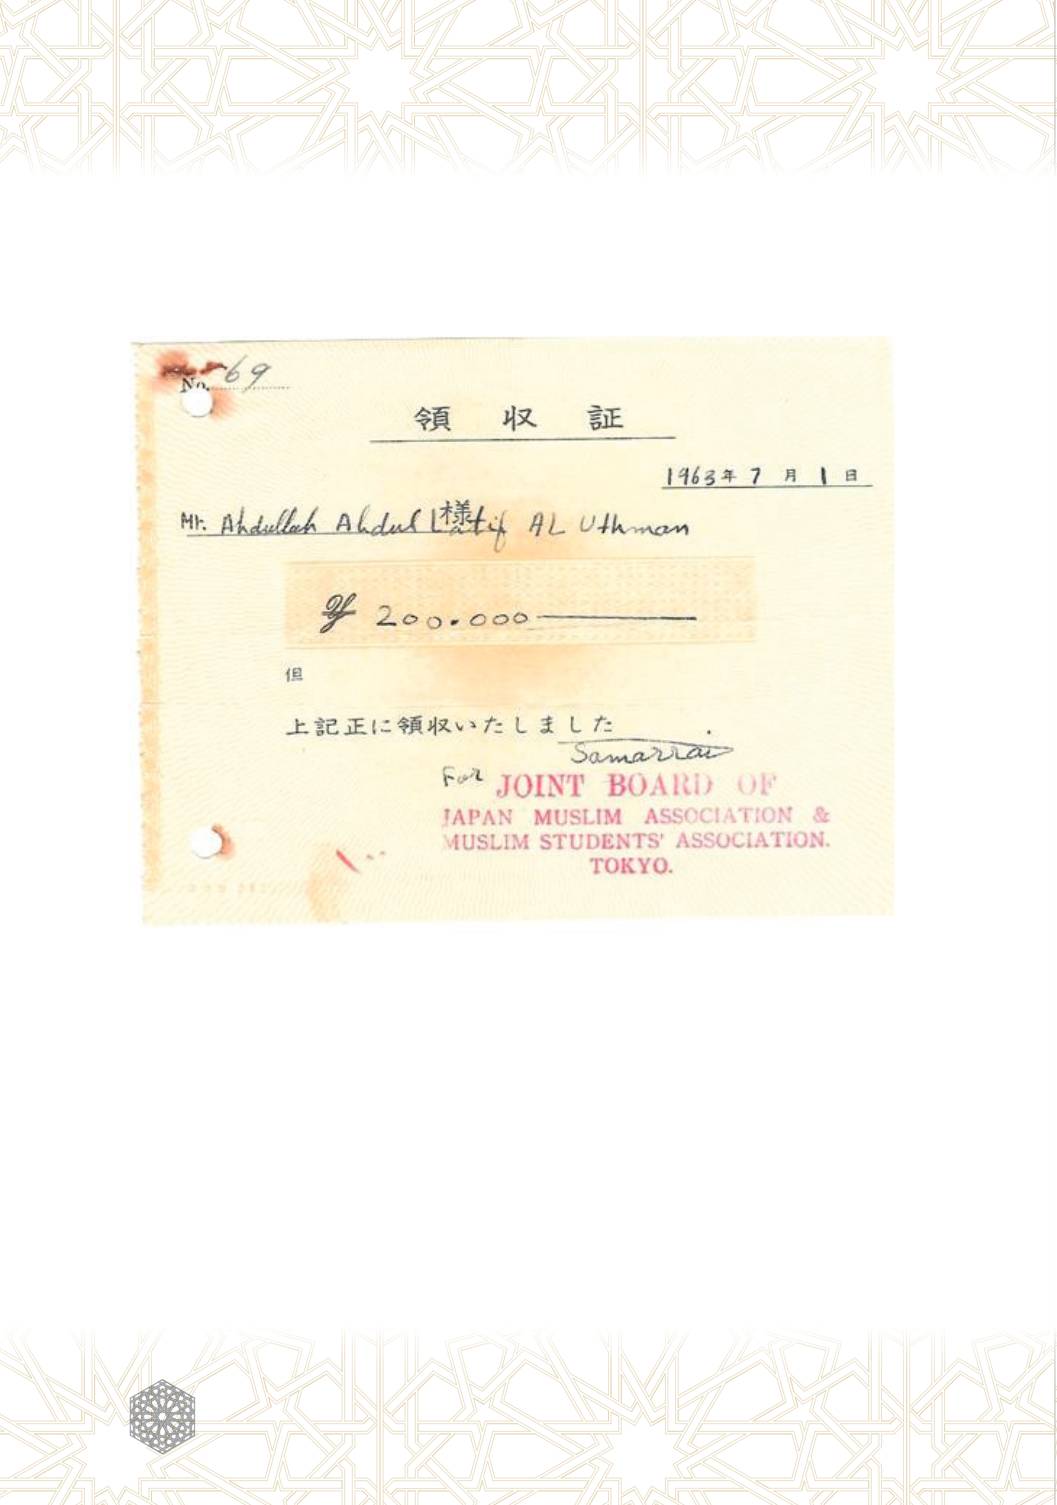 No. 69
領収証
1963年7月1日
Mr. Abdullah Abdul Latif AL Uthman 様
¥ 200.000
但
上記正に領収いたしました
Samarrai
For JOINT BOARD OF
JAPAN MUSLIM ASSOCIATION &
MUSLIM STUDENTS' ASSOCIATION.
TOKYO.